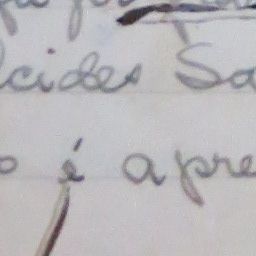 lcides Sa
o é apre